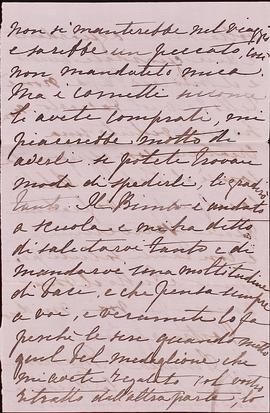 non si manterrebbe nel viaggio
e sarebbe un peccato, così
non mandatelo mica.
Ma i cornetti siccome
li avete comprati, mi
piacerebbe molto di
averli se potete trovar
modo di spedirli, li gradirò
tanto. Il Bimbo è andato
a scuola e mi ha detto
di salutarve tanto e di
mandarve una moltitudine
di baci, e che pensa sempre
a voi, e veramente lo
perchè le sere quando
quel bel medaglione che
mi avete regalato, col vostro
ritratto dall'altra parte, lo